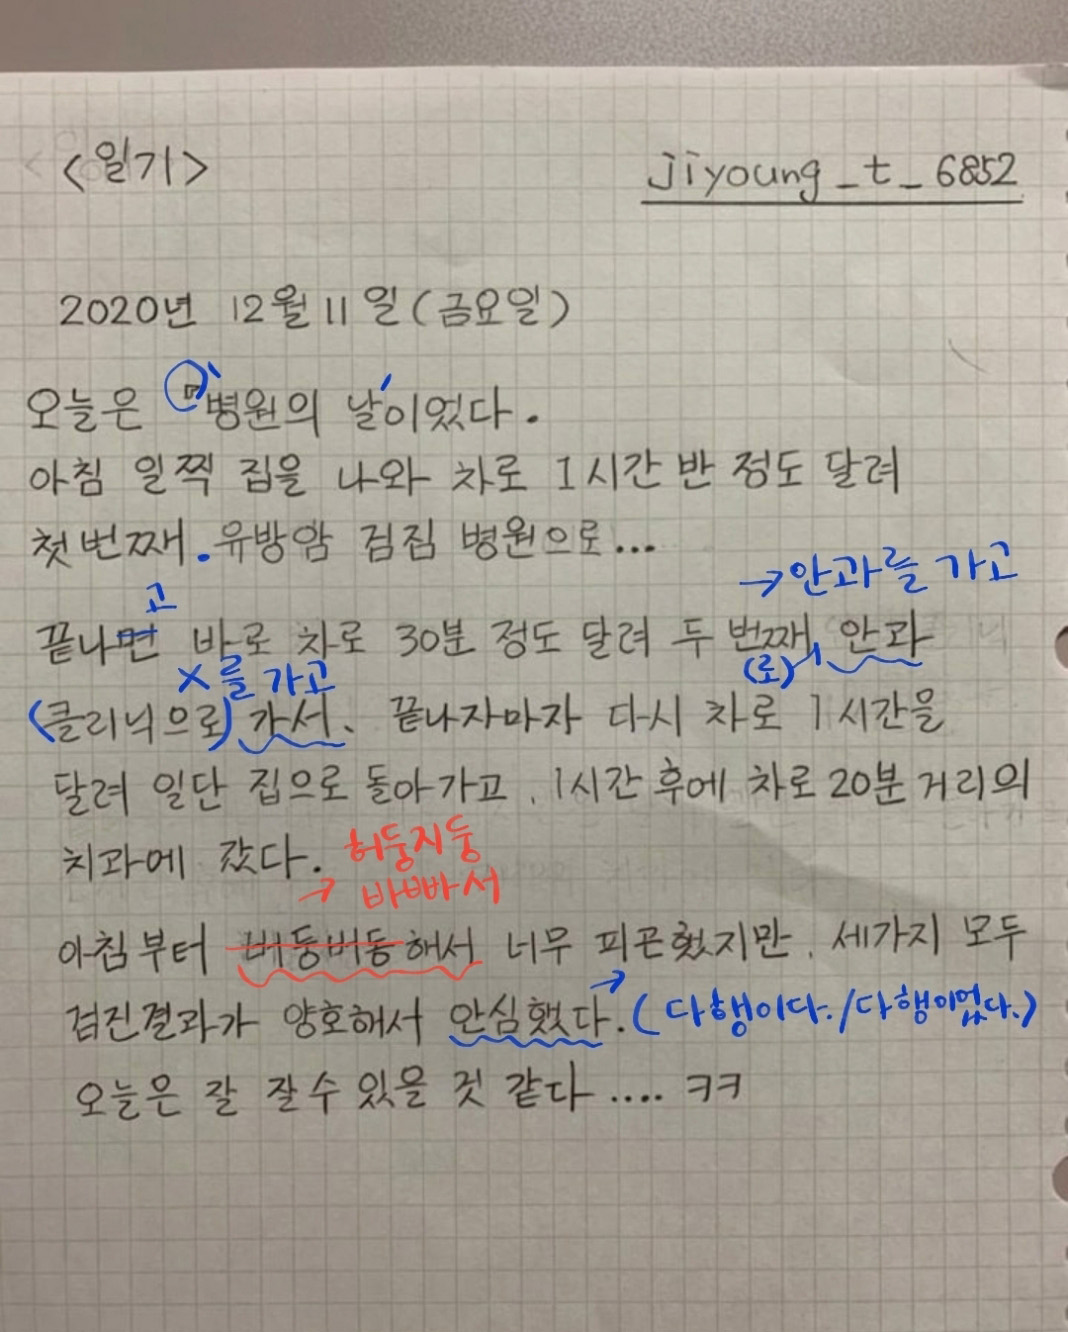 <일기>
jiyoung_t_6852
2020년 12월 11일(금요일)
오늘은 '병원의 날'이었다.
아침 일찍 집을 나와 차로 1시간 반 정도 달려
첫번째. 유방암 검짐 병원으로...
→안과를 가고
고
끝나면 바로 차로 30분 정도 달려 두 번째, 안과
(로)
X를 가고
(클리닉으로) 가서. 끝나자마자 다시 차로 1시간을
달려 일단 집으로 돌아가고, 1시간 후에 차로 20분 거리의
치과에 갔다.
허둥지둥
→ 바빠서
아침부터 버둥버둥해서 너무 피곤했지만, 세가지 모두
검진결과가 양호해서 안심했다. → (다행이다./다행이었다.)
오늘은 잘 잘수 있을 것 같다 .... ㅋㅋ